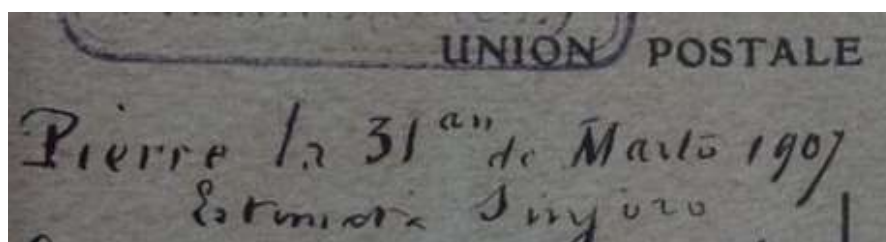 UNION POSTALE
Pierre la 31an de Marto 1907
Estimata Sinjoro